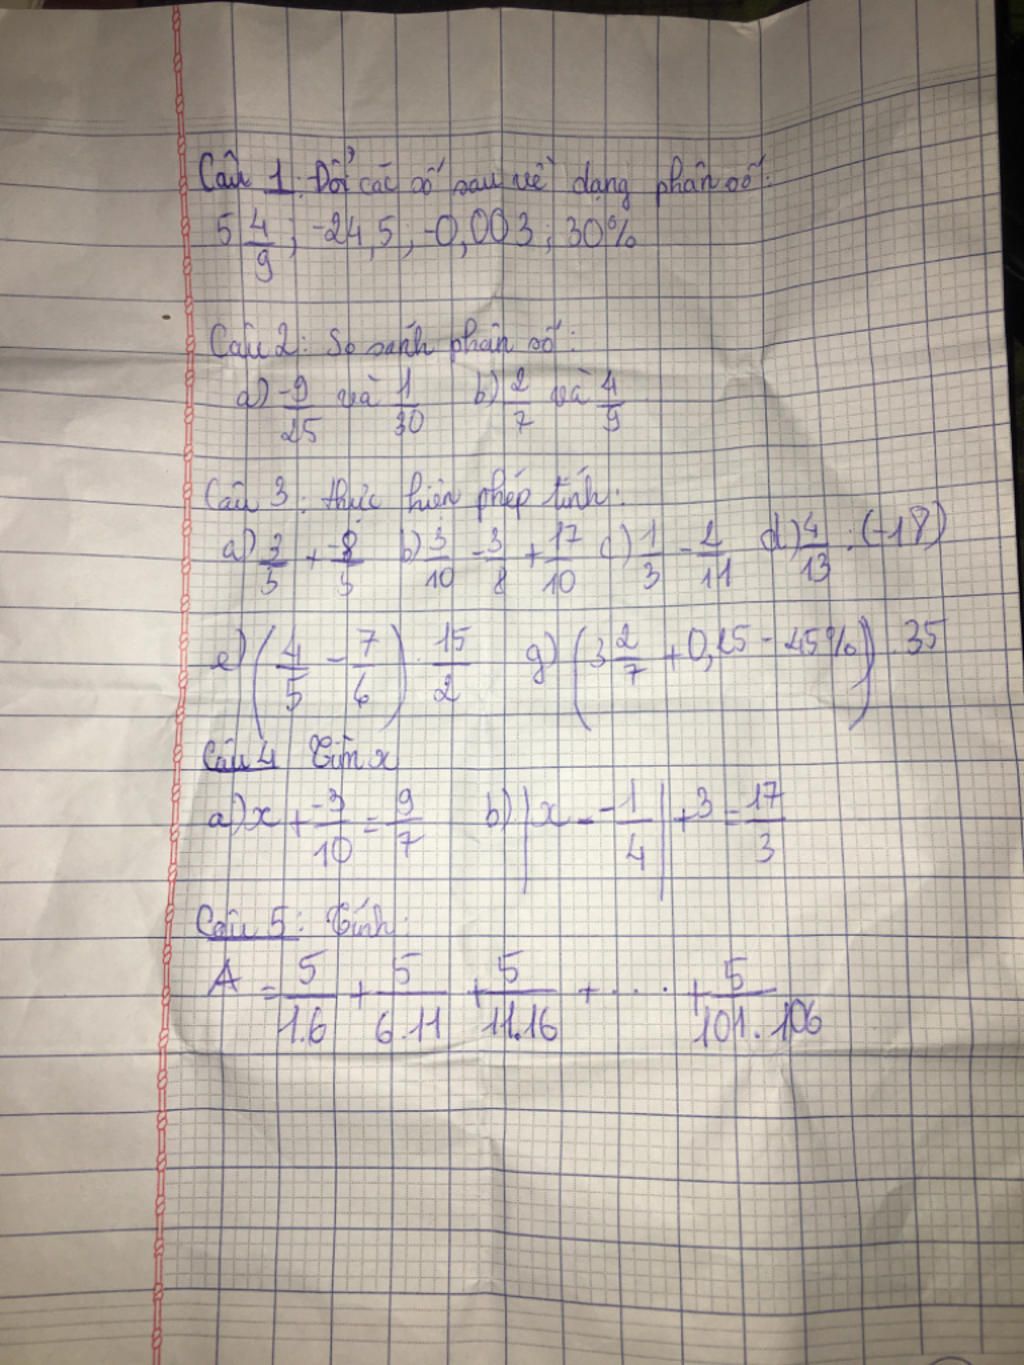 Câu 1: Đổi các số sau về dạng phân số:
5 4/9 ; -24,5 ; -0,003 ; 30%
Câu 2: So sánh phân số:
a) -9/25 và 1/30 b) 2/7 và 4/9
Câu 3: thực hiện phép tính:
a) 3/5 + -8/5 b) 3/10 - 3/8 + 17/10 c) 1/3 - 2/11 d) 4/13 : (-18)
e) (4/5 - 7/6) . 15/2 g) (3 2/7 + 0,25 - 45%) . 35
Câu 4 Tìm x
a) x + -3/10 = 9/7 b) |x - -1/4| + 3 = 17/3
Câu 5: Tính:
A = 5/1.6 + 5/6.11 + 5/11.16 + .... + 5/101.106